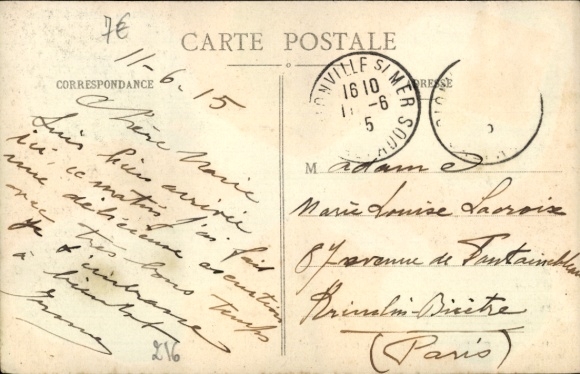 7€
CARTE POSTALE
CORRESPONDANCE
ADRESSE
11-6-15
Chère Marie
Suis bien arrivée
ici, ce matin j'ai fait
une délicieuse excursion
avec très beau temps
Je t'embrasse
à bientôt
216
ONVILLE S/ MER
16 10
11 -6
5
Madame
Marie Louise Lacroix
87 avenue de Fontainebleau
Kremlin-Bicêtre
(Paris)